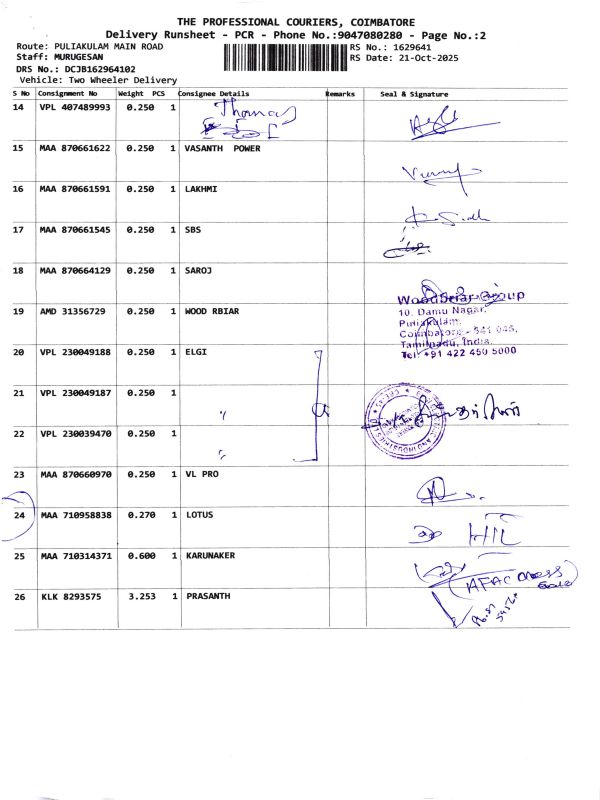 THE PROFESSIONAL COURIERS, COIMBATORE
Delivery Runsheet - PCR - Phone No.:9047080280 - Page No.:2
Route: PULIAKULAM MAIN ROAD RS No.: 1629641
Staff: MURUGESAN RS Date: 21-Oct-2025
DRS No.: DCJB162964102
Vehicle: Two Wheeler Delivery
S No Consignment No Weight PCS Consignee Details Remarks Seal & Signature
14 VPL 407489993 0.250 1 Thomas
15 MAA 870661622 0.250 1 VASANTH POWER
16 MAA 870661591 0.250 1 LAKHMI
17 MAA 870661545 0.250 1 SBS
18 MAA 870664129 0.250 1 SAROJ
WoodBriar Group
19 AMD 31356729 0.250 1 WOOD RBIAR
10, Damu Nagar,
Puliakulam,
Coimbatore - 641 045,
Tamilnadu, India.
Tel: +91 422 450 5000
20 VPL 230049188 0.250 1 ELGI
21 VPL 230049187 0.250 1 "
22 VPL 230039470 0.250 1 "
23 MAA 870660970 0.250 1 VL PRO
24 MAA 710958838 0.270 1 LOTUS
25 MAA 710314371 0.600 1 KARUNAKER
26 KLK 8293575 3.253 1 PRASANTH